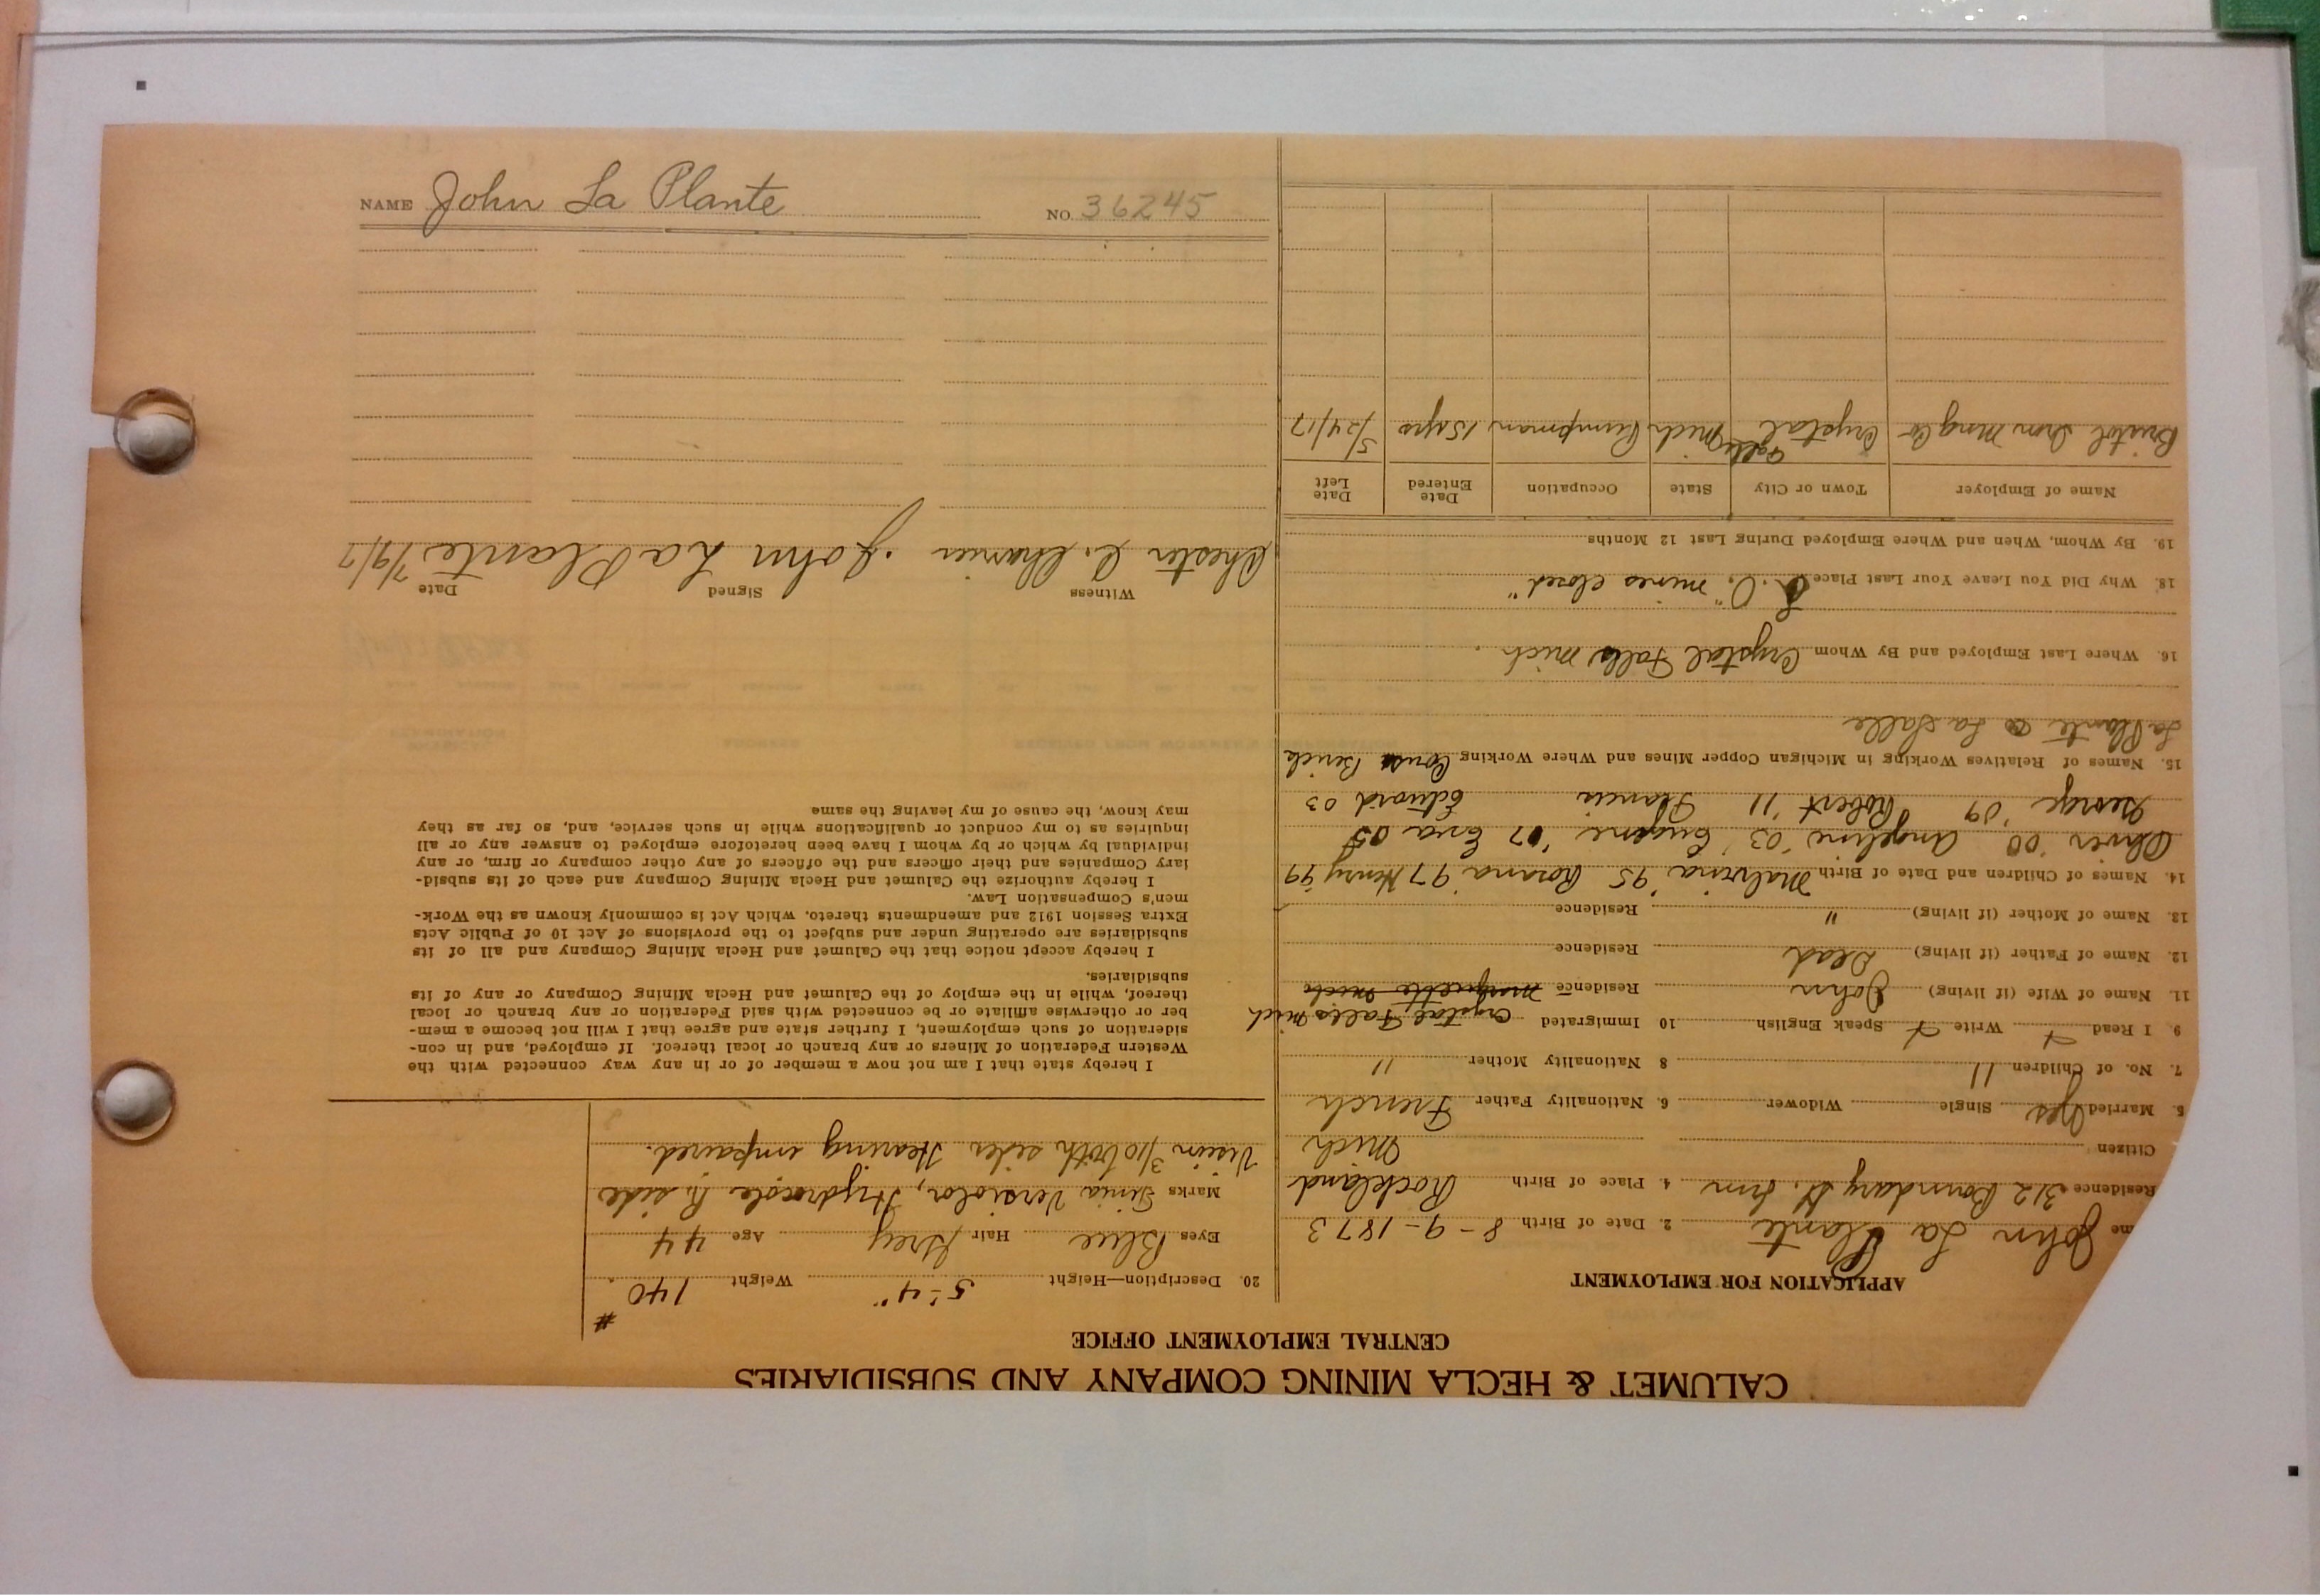 CALUMET & HECLA MINING COMPANY AND SUBSIDIARIES
CENTRAL EMPLOYMENT OFFICE
APPLICATION FOR EMPLOYMENT
me John La Plante 2. Date of Birth 8-9-1873
Residence 312 Boundary St. 4. Place of Birth Rockland
Citizen Mich
5. Married Yes Single Widower 6. Nationality Father French
7. No. of Children 11 8 Nationality Mother "
9. I Read Write Speak English 10 Immigrated Crystal Falls Mich
11. Name of Wife (if living) John Residence Marquette Mich
12. Name of Father (if living) Dead Residence
13. Name of Mother (if living) " Residence
14. Names of Children and Date of Birth Malvina '95 Rosanna '97 Henry '99
Oliver '00 Angeline '03 Eugene '07 Eva 05
George '09 Robert '11 Francis Edward 03
15. Names of Relatives Working in Michigan Copper Mines and Where Working Cous
La Plante @ La Salle
16. Where Last Employed and By Whom Crystal Falls Mich.
18. Why Did You Leave Your Last Place "mines closed"
19. By Whom, When and Where Employed During Last 12 Months
Name of Employer Town or City State Occupation Date Entered Date Left
Bristol Iron Mng Co Crystal Falls Mich Pumpman 15 yrs 5/24/17
20. Description—Height 5-4" Weight 140 #
Eyes Blue Hair Grey Age 44
Marks Tinia Versiolor, Hydrocele R. side
Vision 3/10 both sides Hearing impaired.
I hereby state that I am not now a member of or in any way connected with the
Western Federation of Miners or any branch or local thereof. If employed, and in con-
sideration of such employment, I further state and agree that I will not become a mem-
ber or otherwise affiliate or be connected with said Federation or any branch or local
thereof, while in the employ of the Calumet and Hecla Mining Company or any of its
subsidiaries.
I hereby accept notice that the Calumet and Hecla Mining Company and all of its
subsidiaries are operating under and subject to the provisions of Act 10 of Public Acts
Extra Session 1912 and amendments thereto, which Act is commonly known as the Work-
men's Compensation Law.
I hereby authorize the Calumet and Hecla Mining Company and each of its subsid-
iary Companies and their officers and the officers of any other company or firm, or any
individual by which or by whom I have been heretofore employed to answer any or all
inquiries as to my conduct or qualifications while in such service, and, so far as they
may know, the cause of my leaving the same
Witness Signed Date
Chester John La Plante 7/9/17
NAME John La Plante NO. 36245